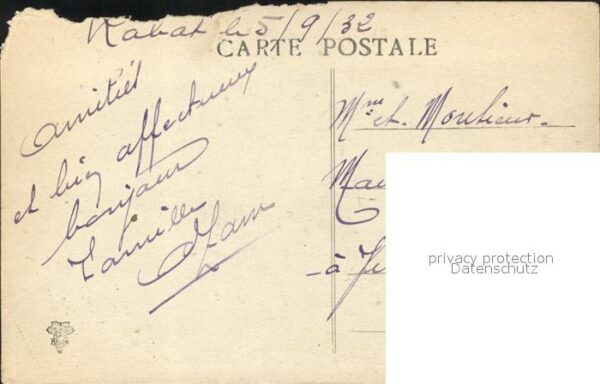 Rabat le 5/9/32
CARTE POSTALE
Amitiés
et bien affectueux
bonjour
Famille
Mme et Monsieur
à
privacy protection
Datenschutz